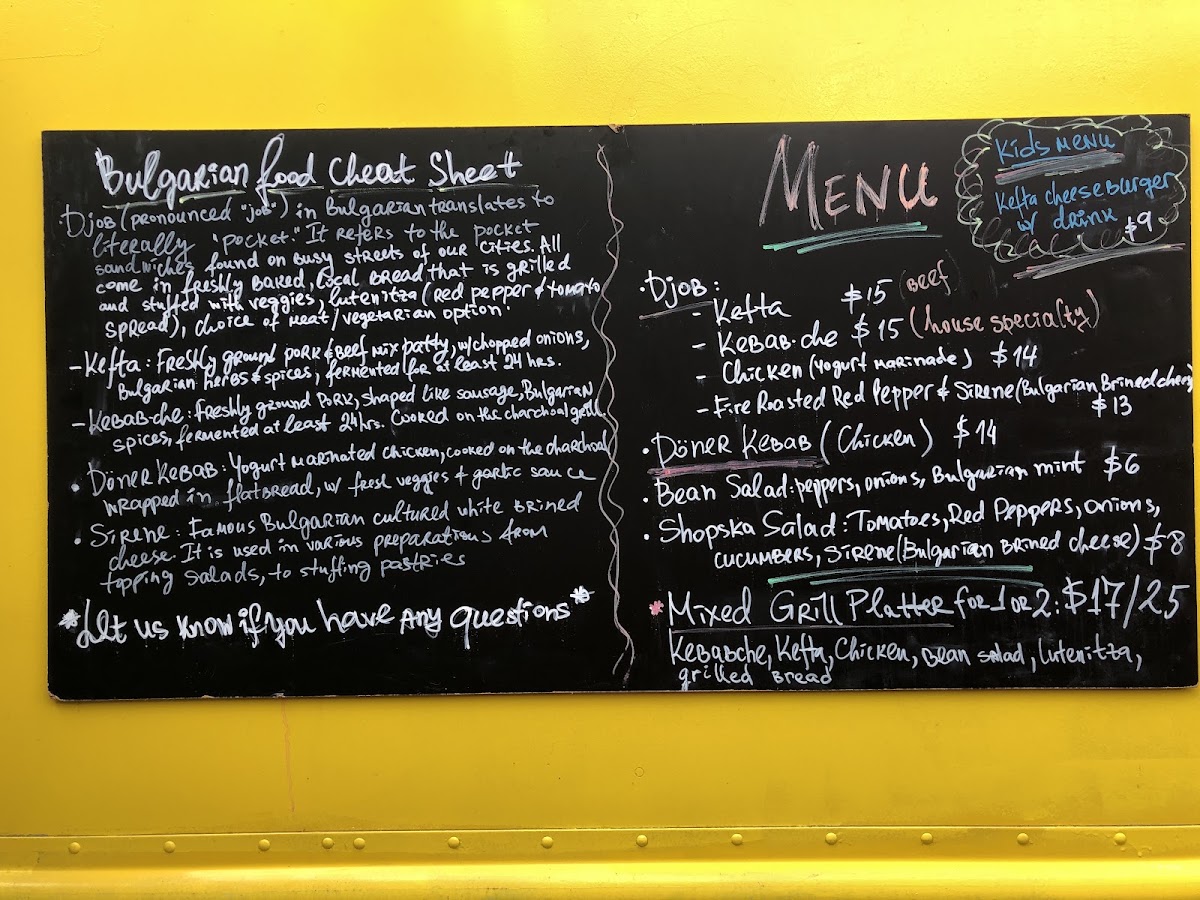 Bulgarian food Cheat Sheet
Djob (pronounced "job") in Bulgarian translates to
literally "pocket." It refers to the pocket
sandwiches found on busy streets of our cities. All
come in freshly baked, local bread that is grilled
and stuffed with veggies, lutenitza (red pepper & tomato
spread), choice of meat/vegetarian option.
- Kefta: Freshly ground pork & beef mix patty, w/chopped onions,
Bulgarian herbs & spices, fermented for at least 24 hrs.
- Kebab-che: Freshly ground pork, shaped like sausage, Bulgarian
spices, fermented at least 24hrs. Cooked on the charchoal grill
• Döner Kebab: Yogurt marinated chicken, cooked on the charchoal
wrapped in flatbread, w/ fresh veggies & garlic sauce
• Sirene: Famous Bulgarian cultured white brined
cheese. It is used in various preparations from
topping salads, to stuffing pastries
*Let us know if you have any questions*
Menu
Kids Menu
Kefta cheeseburger
w/ drink
$9
• Djob:
- Kefta $15 (Beef)
- Kebab-che $15 (house specialty)
- Chicken (Yogurt marinade) $14
- Fire Roasted Red Pepper & Sirene (Bulgarian Brined cheese)
$13
• Döner Kebab (Chicken) $14
• Bean Salad: peppers, onions, Bulgarian mint $6
• Shopska Salad: Tomatoes, Red Peppers, onions,
cucumbers, Sirene (Bulgarian brined cheese) $8
* Mixed Grill Platter for 1 or 2: $17/25
Kebabche, Kefta, Chicken, Bean salad, lutenitza,
grilled bread